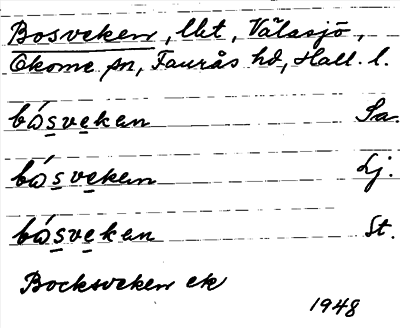 Bosveken, llt, Välasjö,
Okome sn, Faurås hd, Hall. l.
bósveken Sa.
bósveken Lj.
bósveken St.
Bocksveken ek
1948